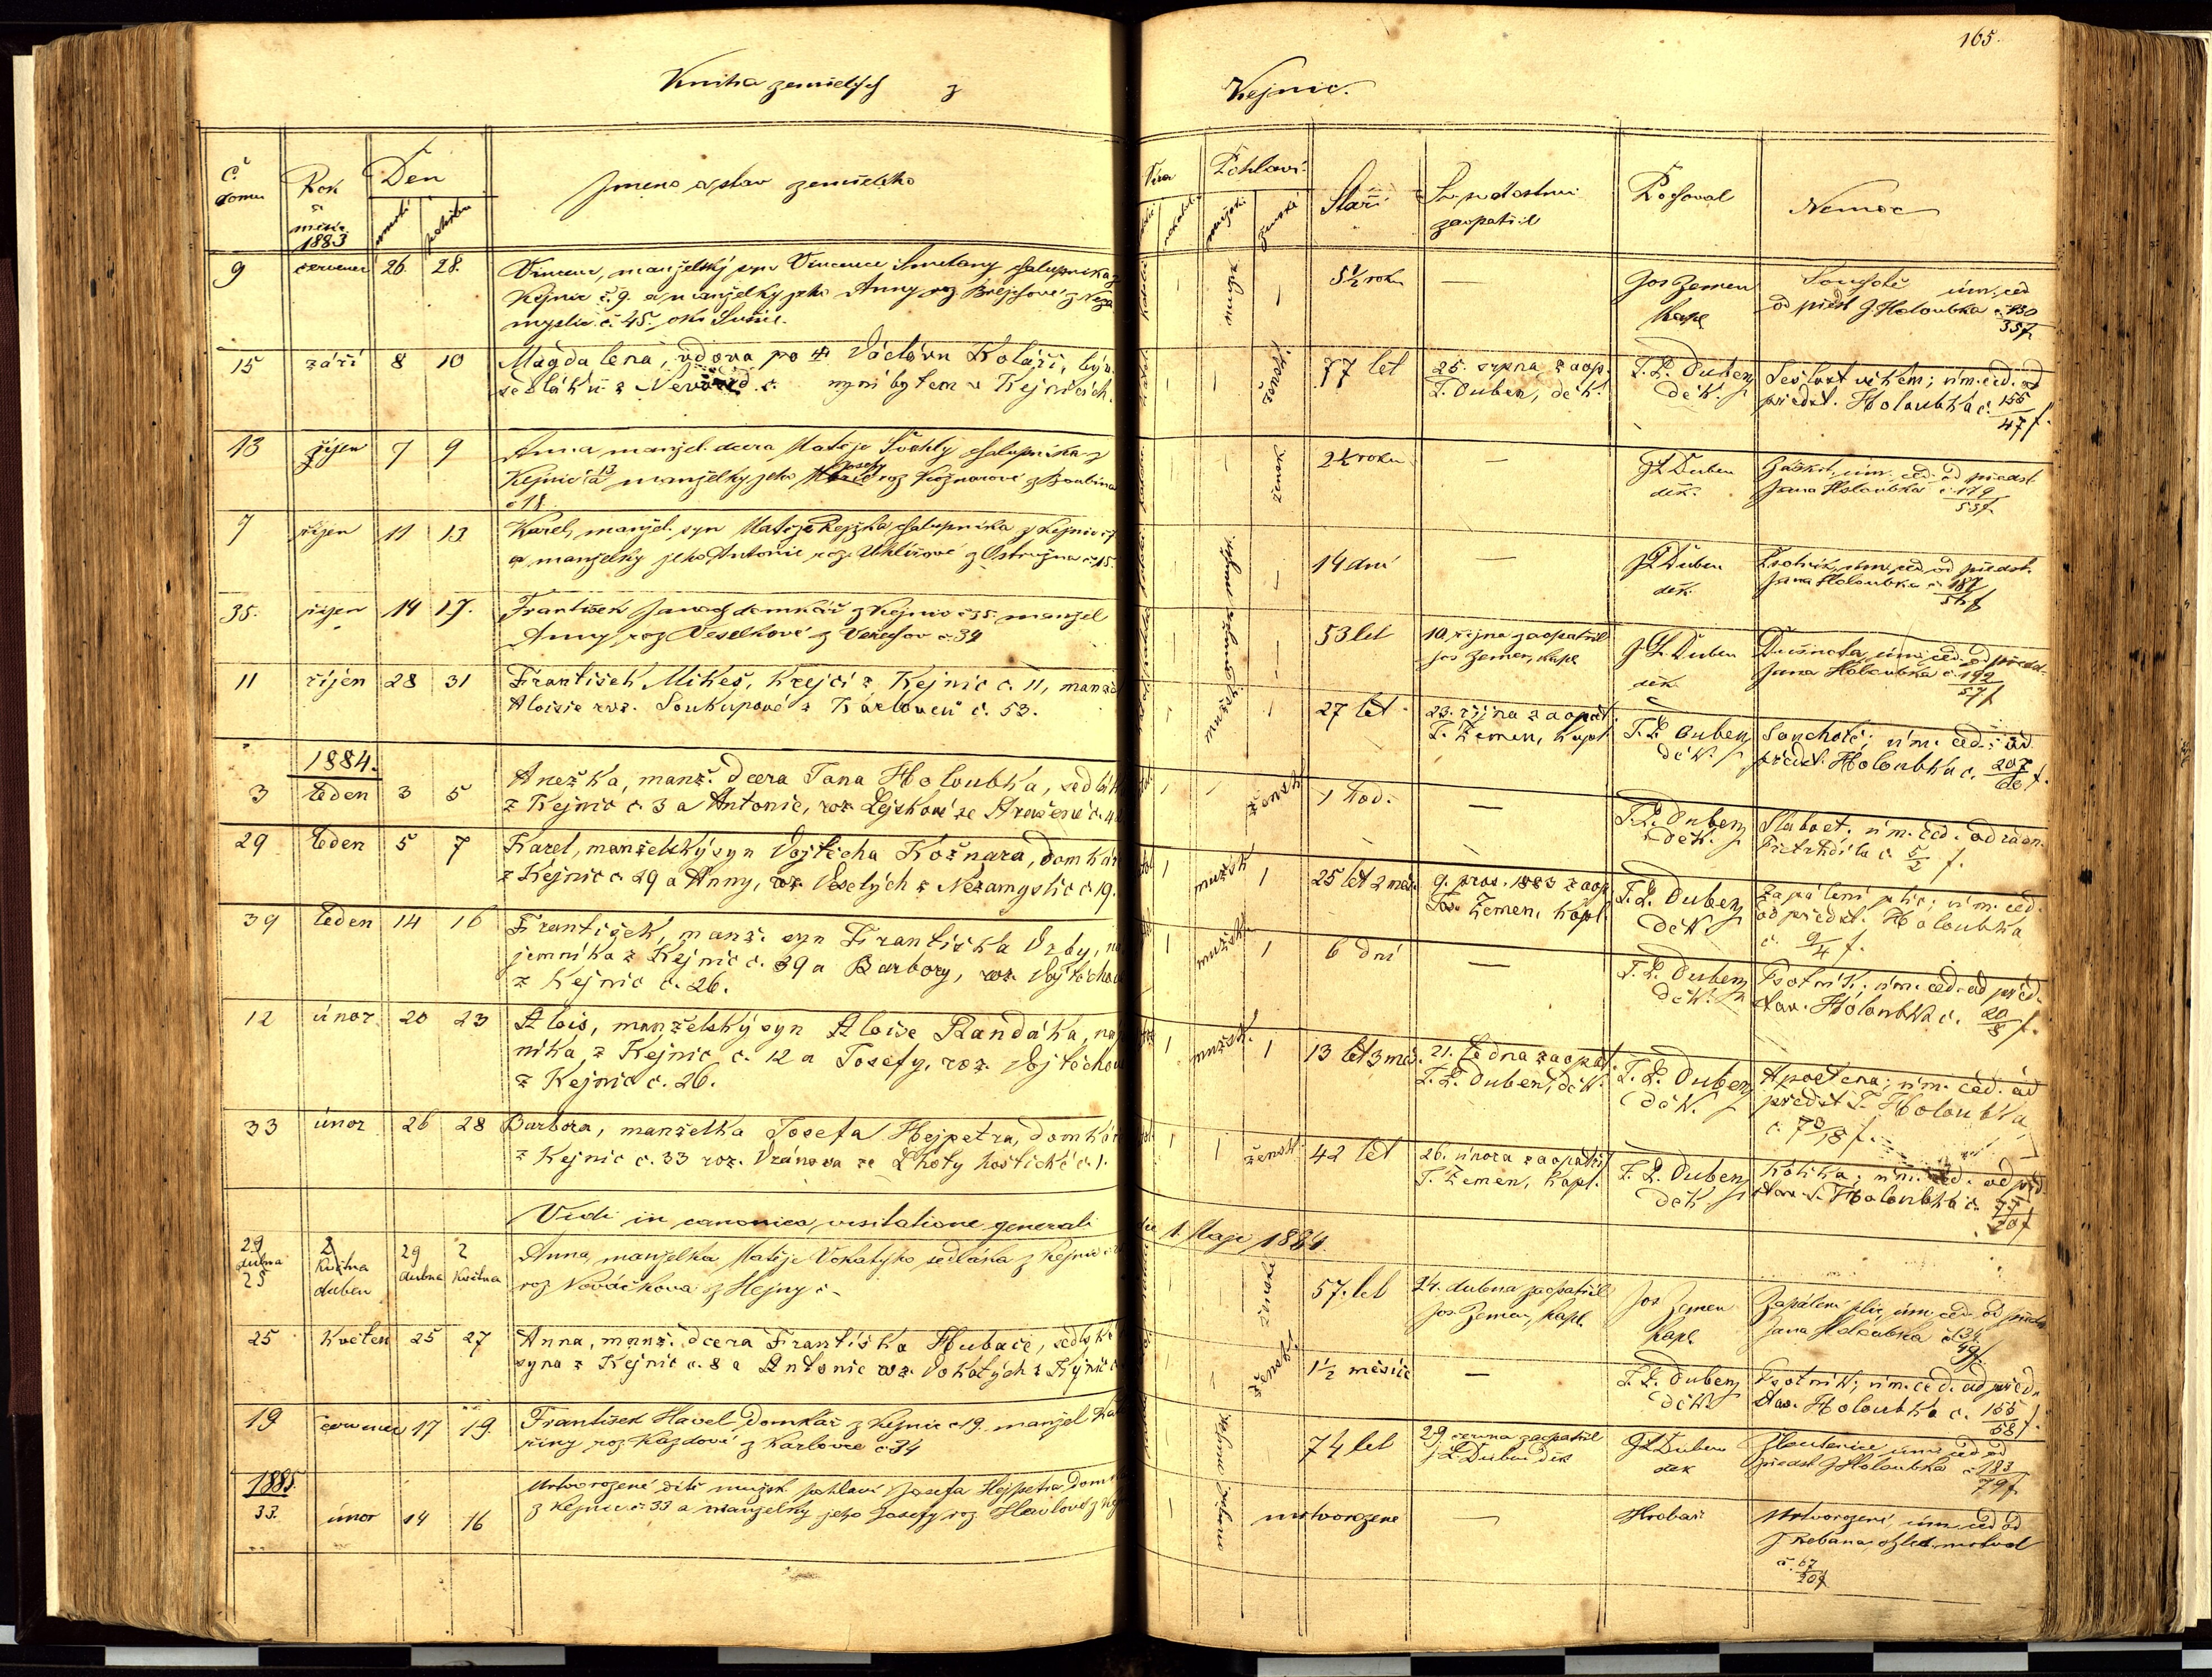 165.
Kniha zemřelých z
Kejnic.
Č. domu
Rok a měsíc 1883
Den
úmrtí
pohřbu
Jmeno a stav zemřelého
Víra
Pohlaví
mužské
ženské
Stáří
Sv. svátostmi zaopatřil
Pochoval
Nemoc
9 červenec 26. 28. Vincenc, manželský syn Vincence Smetany chalupníka z
Kejnic č. 9. a manželky jeho Anny roz. Brejchové z Neza
myslic č. 45. okr. Sušic.
5 1/2 roku — Jos Zemen kapl.
Souchotě úm. ced
od předst J. Holoubka č. 130
35 f.
15 září 8 10 Magdalena, vdova po † Václavu Koláři, býv.
sedláku z č. nyní bytem v Kejnicích.
žensk. 77 let 25. srpna zaop.
J. Duben, děk.
J. L. Duben, děk.
Sešlost věkem; úm. ced. od
předst. Holoubka č. 155
47 f.
13 říjen 7 9 Anna manžel. dcera Matěje Švehly chalupníka z
Kejnic č 13 a manželky jeho Josefy roz Kožnarové z Boubína
č 18.
žensk 2 1/2 roku — J L Duben děk.
Záškrt, úm. ced. od předst
Jana Holoubka č. 179
53 f.
7 říjen 11 13 Karel, manžel. syn Matěje Rejžka chalupníka z Kejnic č 7
a manželky jeho Antonie roz. Uhlířové z Ostružna č. 15.
14 dní — J L Duben děk.
Psotník, úm. ced. od předst.
Jana Holoubka č. 187
56 f
35. říjen 14 17. František domkář z Kejnic č 35. manžel
Anny roz Veselkové z Veřechov č. 34
53 let 10. října zaopatřil
Jos Zemen, kapl
J. L. Duben děk.
Dušnota, úm. ced. od předst.
Jana Holoubka č. 192
57 f
11 říjen 28 31 František Mikeš, krejčí z Kejnic č. 11, manžel
Aloisie roz. Soukupové z Karlovců č. 53.
mužsk. 27 let 23. října zaopat.
J. Zemen, kapl.
J. L. Duben, děk.
Souchotě; úm. ced. od
předst. Holoubka č. 207
60 f.
1884.
3 leden 3 5 Anežka, manž. dcera Jana Holoubka, sedláka
z Kejnic č. 3 a Antonie, roz. Lejskové ze
žensk 1 hod. — J. L. Duben, děk.
Slabost; úm. ced. od radn.
č. 5
2 f.
29 leden 5 7 Karel, manželský syn Vojtěcha Kožnara, domkáře
z Kejnic č. 29 a Anny, roz. Veselých z Nezamyslic č. 19.
mužsk 25 let 2 měs. 9. pros. 1883 zaop.
Jos. Zemen, kapl.
J. L. Duben, děk.
Zapálení plic; úm. ced.
od předst. Holoubka
č. 9
4 f.
39 leden 14 16 František, manž. syn Františka Vrby, ná
jemníka z Kejnic č. 39 a Barbory, roz. Vojtěchové
z Kejnic č. 26.
mužsk 6 dní — J. L. Duben, děk.
Psotník; úm. ced. od před-
stav. Holoubka č. 20
8 f.
12 únor 20 23 Alois, manželský syn Aloise Randáka, náj
níka z Kejnic č. 12 a Josefy, roz. Vojtěchové
z Kejnic č. 26.
mužsk. 13 let 3 měs. 21. ledna zaopat.
J. L. Duben, děk.
J. L. Duben, děk.
úm. ced. od
předst J. Holoubka
č. 73
18 f.
33 únor 26 28 Barbora, manželka Josefa Hejpetra, domkáře
z Kejnic č. 33 roz. Vránova ze Lhoty hostické č. 1.
žensk. 42 let 26. února zaopatřil
J. Zemen, kapl.
J. L. Duben, děk.
úm. ced. od před
stav. J. Holoubka č.
Vidi in canonica visitatione generali die 1. Maje 1884.
29 dubna 25 2 května duben 29 dubna 2 května Anna, manželka Matěje Vokatýho sedláka z Kejnic č.
roz Nováčkova z Hejny č –
ženské 57. let 24. dubna zaopatřil
Jos. Zemen, kapl.
Jos Zemen kapl.
Zapálení plic, úm. ced. od předst.
Jana Holoubka č. 134
49 f.
25 květen 25 27 Anna, manž. dcera Františka Hubače, sedlské
syna z Kejnic č. 8 a Antonie roz. Vokatých z Kejnic č.
žensk. 1 1/2 měsíce — J. L. Duben, děk.
Psotník; úm. ced. od před-
stav. Holoubka č. 155
58 f.
19 červenec 17 19. František Havel domkář z Kejnic č 19. manžel Kat
řiny roz Kazdové z Karlovce č. 34
74 let 29 června zaopatřil
J. L. Duben děk
J L Duben děk
Žloutenice úm. ced od
předst J Holoubka č 183
79 f.
1885.
33. únor 14 16 Mrtvorozené dítě mužsk. pohlaví Josefa Hejpetra domk
z Kejnic č 33 a manželky jeho Josefy roz. Havlové z Kej
mrtvorozené — Hrobař
Mrtvorozené, úm. ced od
J. ohled. mrtvol
č. 67
20 f